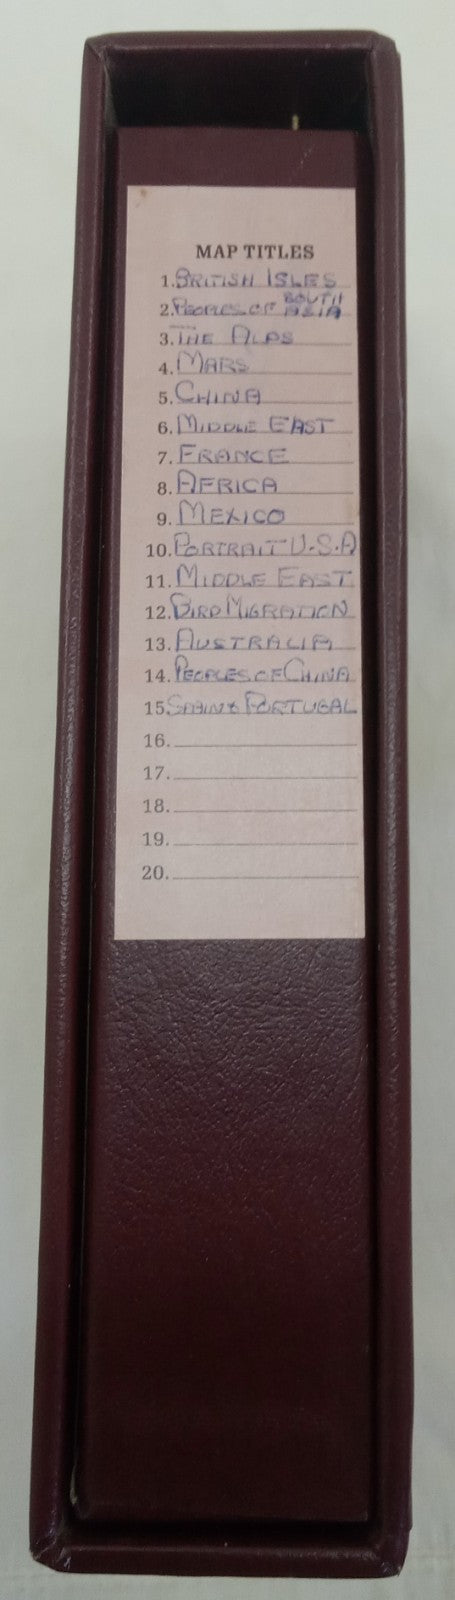 MAP TITLES
1. BRITISH ISLES
2. PEOPLES OF SOUTH ASIA
3. THE ALPS
4. MARS
5. CHINA
6. MIDDLE EAST
7. FRANCE
8. AFRICA
9. MEXICO
10. PORTRAIT U.S.A
11. MIDDLE EAST
12. BIRD MIGRATION
13. AUSTRALIA
14. PEOPLES OF CHINA
15. SPAIN & PORTUGAL
16.
17.
18.
19.
20.